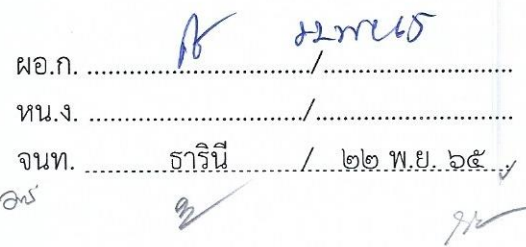 ผอ.ก. ................................../..............................
หน.ง. ................................../..............................
จนท. ............ธารินี............/...๒๒ พ.ย. ๖๕...